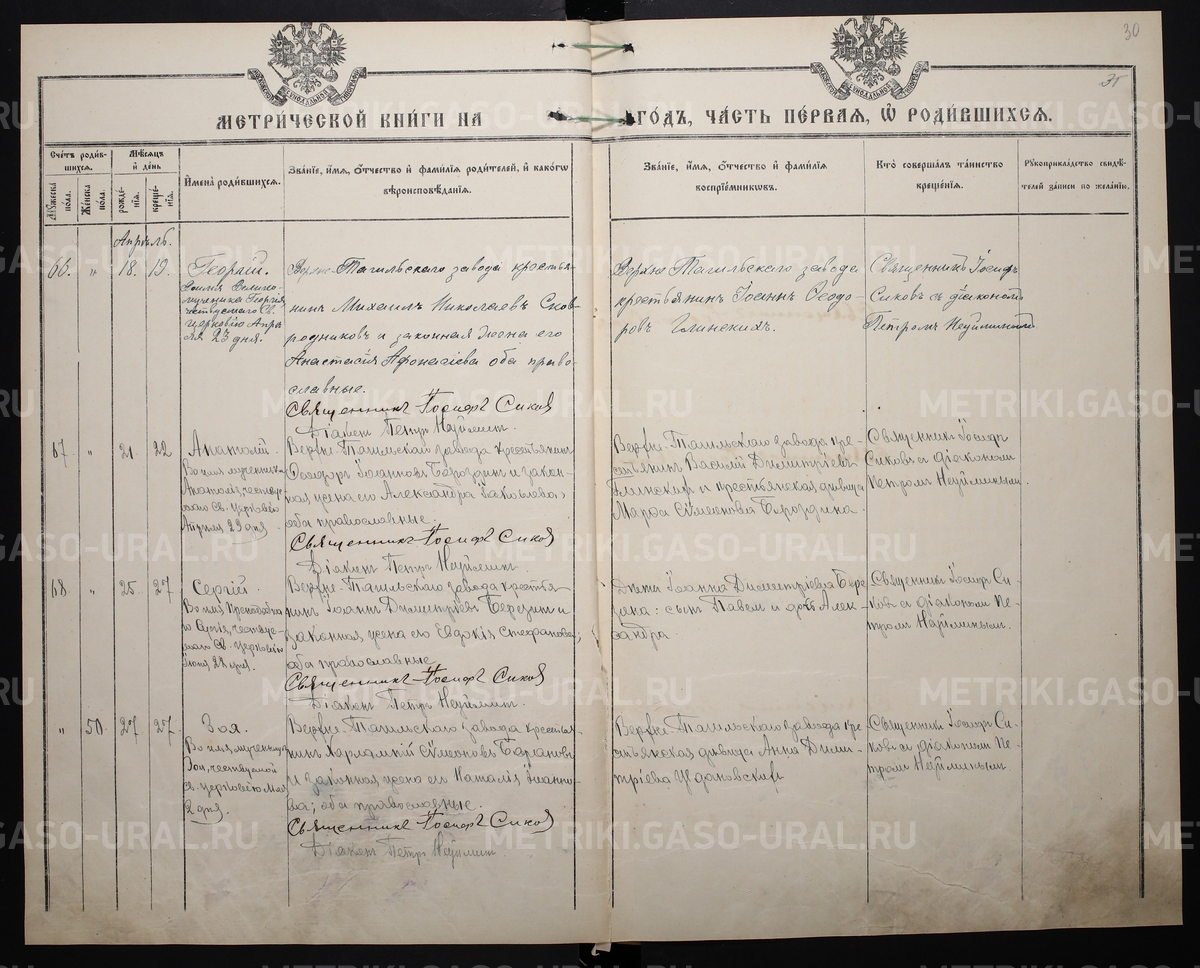 30
МЕТРИ́ЧЕСКОЙ КНИ́ГИ НА
ГО́ДЪ, ЧА́СТЬ ПЕ́РВАЯ, Ѽ РОДИ́ВШИХСѦ.
Сче́тъ роди́в-
шихсѧ.
Мѣсѧцъ
и҆ де́нь
Му́жеска
по́ла.
Же́нска
по́ла.
рожде́-
нїѧ.
креще́-
нїѧ.
И҆мена̀ роди́вшихсѧ.
Зва́нїе, и҆́мѧ, ѻ҆́тчество и҆ фами́лїѧ роди́телей, и҆ како́гѡ
вѣроисповѣ́данїѧ.
Зва́нїе, и҆́мѧ, ѻ҆́тчество и҆ фами́лїѧ
воспрїе́мникѡвъ.
Кто̀ соверша́лъ та́инство
креще́нїѧ.
Рꙋкоприкла́дство свидѣ́-
телей за́писи по жела́нїю.
Апрѣль.
66. " 18. 19.
Георгій.
Во имя Велико-
мученика Георгія
чествуемаго Св.
церковію Апрѣ-
ля 23 дня.
Верхне-Тагильскаго завода крестья-
нинъ Михаилъ Николаевъ Сков-
родниковъ и законная жена его
Анастасія Афонасіева оба право-
славные.
Священникъ Іосифъ Сиковъ
Діаконъ Петръ Неуйминъ.
Верхне Тагильскаго завода
крестьянинъ Іоаннъ Ѳеодо-
ровъ Глинскихъ.
Священникъ Іосифъ
Сиковъ съ діакономъ
Петромъ Неуйминымъ
67. " 21. 22
Анатолій.
Во имя мученика
Анатолія, чествуе-
маго Св. церковію
Апрѣля 23 дня
Верхне-Тагильскаго завода крестьянинъ
Ѳеодоръ Іоанновъ Бороздинъ и закон-
ная жена его Александра Іаковлева;
оба православные.
Священникъ Іосифъ Сиковъ
Діаконъ Петръ Неуйминъ.
Верхне-Тагильскаго завода кре-
стьянинъ Василій Димитріевъ
Глинскихъ и крестьянская дѣвица
Марѳа Симеонова Бороздина.
Священникъ Іосифъ
Сиковъ съ діакономъ
Петромъ Неуйминымъ.
68. " 25. 27
Сергій.
Во имя Преподобна-
го Сергія, чествуе-
маго Св. церковію
Іюня 28 дня.
Верхне-Тагильскаго завода крестья-
нинъ Іоаннъ Димитріевъ Березинъ и
законная жена его Евдокія Стефанова;
оба православные
Священникъ Іосифъ Сиковъ
Діаконъ Петръ Неуйминъ.
Дѣти Іоанна Димитріева Бере-
зина: сынъ Павелъ и дочь Алек-
сандра.
Священникъ Іосифъ Си-
ковъ съ діакономъ Пе-
тромъ Неуйминымъ.
" 50. 27 27.
Зоя.
Во имя мученицы
Зои, чествуемой
Св. церковію Мая
2 дня.
Верхне-Тагильскаго завода крестья-
нинъ Харлампій Симеоновъ Барановъ
и законная жена его Наталія Іоанно-
ва; оба православные.
Священникъ Іосифъ Сиковъ
Діаконъ Петръ Неуйминъ.
Верхне-Тагильскаго завода кре-
стьянская дѣвица Анна Дими-
тріева
Священникъ Іосифъ Си-
ковъ съ діакономъ Пе-
тромъ Неуйминымъ.
METRIKI.GASO-URAL.RU